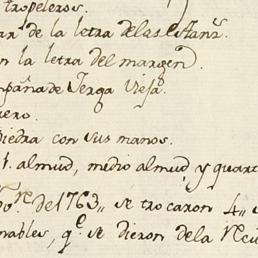 tropeleros.
de la letra delas estanz.ˢ
n la letra del margen.
de Jerga Vieja.
ero.
piedra con sus manos.
1. almud, medio almud, y quart
de 1763,, se trocaron 4,,
nables, q.ᵉ se dieron dela